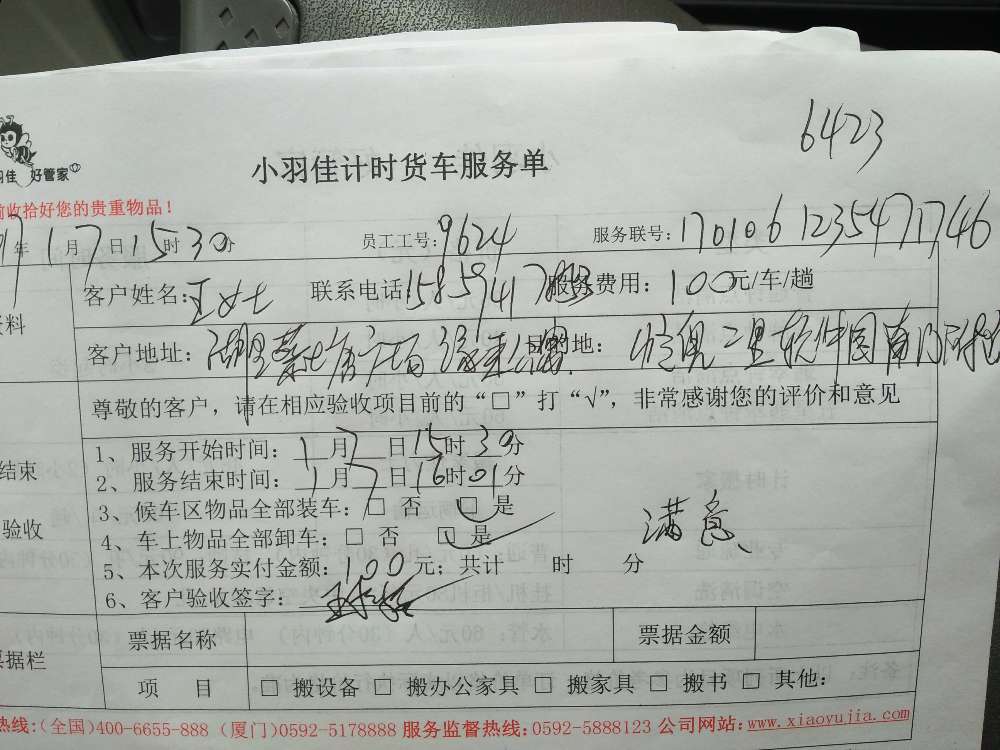 6423
羽佳 好管家
小羽佳计时货车服务单
前收拾好您的贵重物品！
年1月7日15时30分 员工工号：9624 服务联号：1701061235471746
客户姓名：王女士 联系电话：15859417 服务费用：100元/车/趟
资料
客户地址：湖里 广场 目的地： 二里软件园
尊敬的客户，请在相应验收项目前的“□”打“√”，非常感谢您的评价和意见
结束
验收
1、服务开始时间：1月7日15时30分
2、服务结束时间：1月7日16时01分
3、候车区物品全部装车：□ 否 □ 是
4、车上物品全部卸车：□ 否 □ 是
满意
5、本次服务实付金额：100元；共计 时 分
6、客户验收签字：
票据栏
票据名称 票据金额
项 目 □ 搬设备 □ 搬办公家具 □ 搬家具 □ 搬书 □ 其他：
热线：(全国)400-6655-888 (厦门)0592-5178888 服务监督热线：0592-5888123 公司网站：www.xiaoyujia.com